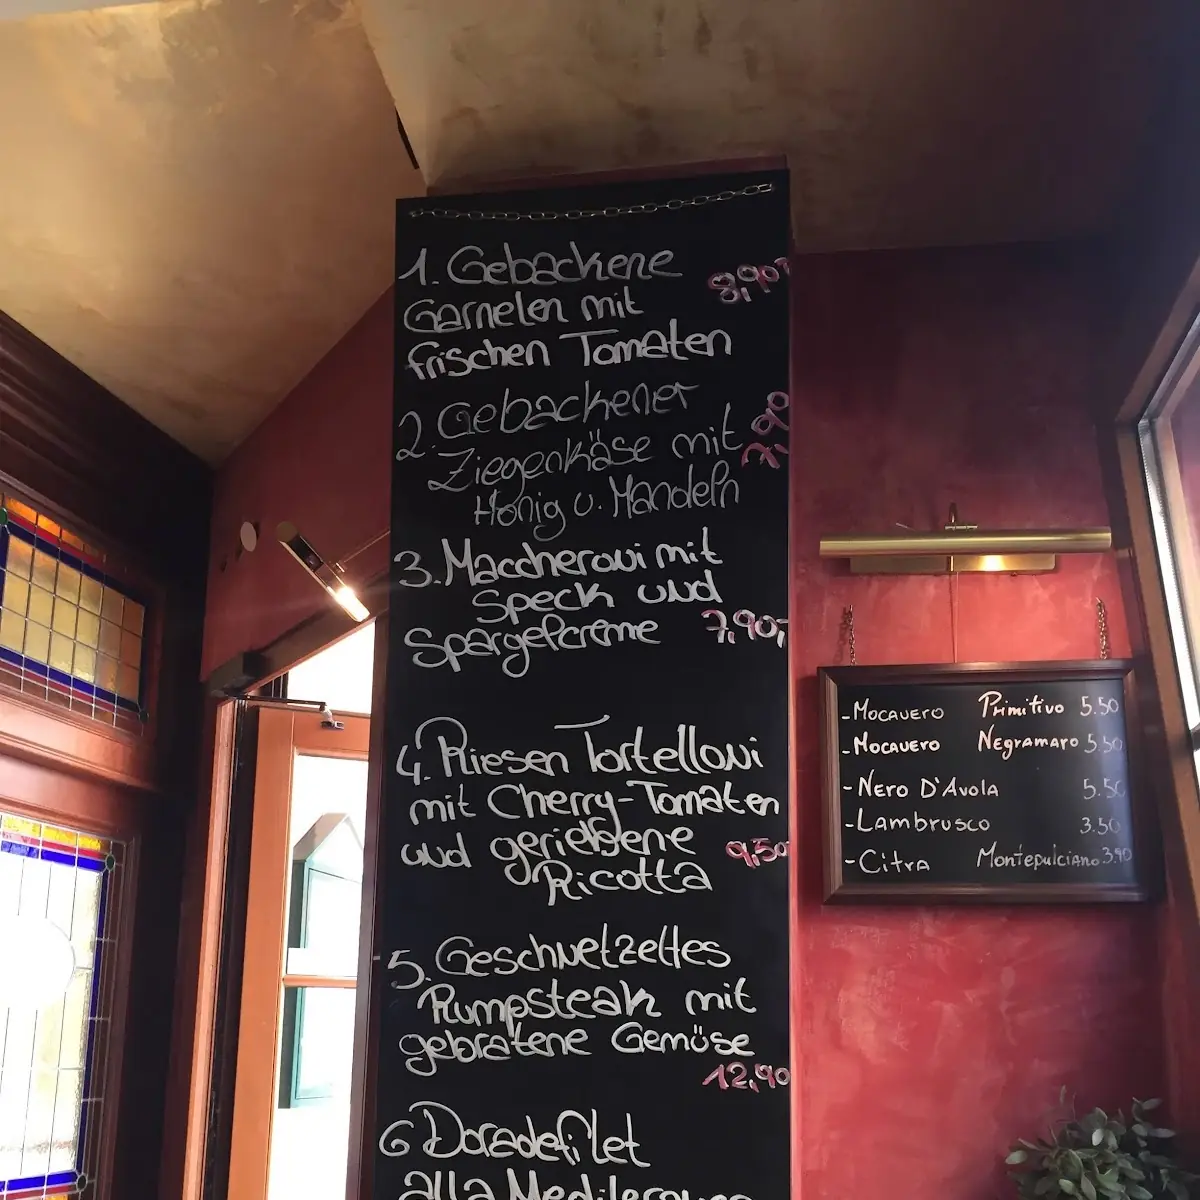 1. Gebackene
Garnelen mit 8,90
frischen Tomaten
2. Gebackener
Ziegenkäse mit 7,90
Honig u. Mandeln
3. Maccheroni mit
Speck und
Spargelcreme 7,90,-
4. Riesen Tortelloni
mit Cherry-Tomaten
und geriebene 9,50
Ricotta
5. Geschnetzeltes
Rumpsteak mit
gebratene Gemüse
12,90
6 Doradefilet
alla
- Mocavero Primitivo 5.50
- Mocavero Negramaro 5.50
- Nero D'Avola 5.50
- Lambrusco 3.50
- Citra Montepulciano 3.90